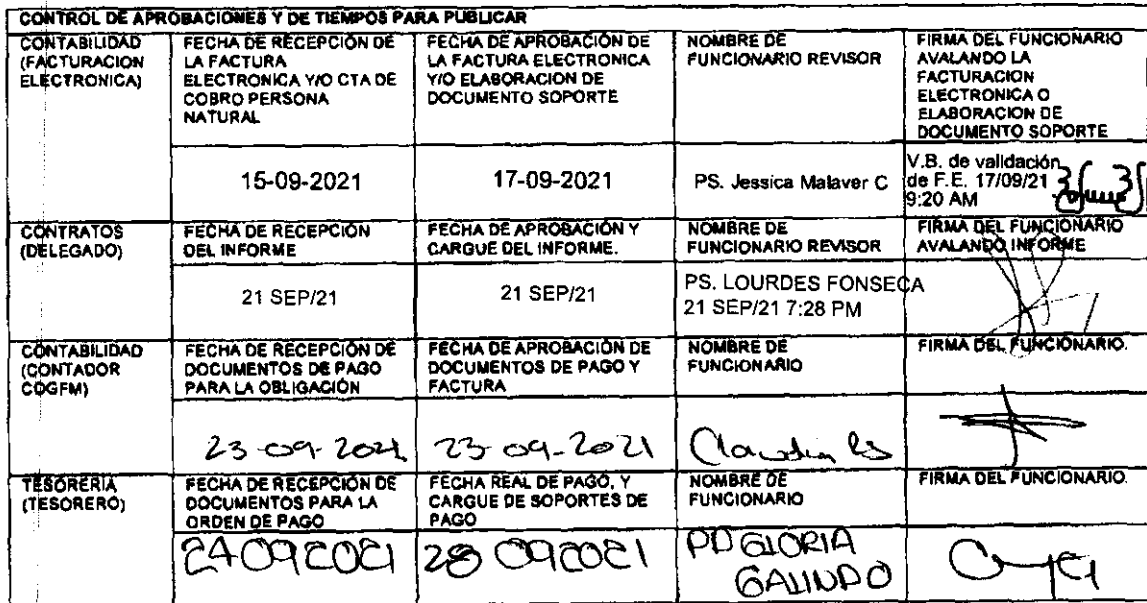 CONTROL DE APROBACIONES Y DE TIEMPOS PARA PUBLICAR
CONTABILIDAD
(FACTURACION
ELECTRONICA)
FECHA DE RECEPCIÓN DE
LA FACTURA
ELECTRONICA Y/O CTA DE
COBRO PERSONA
NATURAL
FECHA DE APROBACIÓN DE
LA FACTURA ELECTRONICA
Y/O ELABORACION DE
DOCUMENTO SOPORTE
NOMBRE DE
FUNCIONARIO REVISOR
FIRMA DEL FUNCIONARIO
AVALANDO LA
FACTURACION
ELECTRONICA O
ELABORACION DE
DOCUMENTO SOPORTE
15-09-2021
17-09-2021
PS. Jessica Malaver C
V.B. de validación
de F.E. 17/09/21
9:20 AM
CONTRATOS
(DELEGADO)
FECHA DE RECEPCIÓN
DEL INFORME
FECHA DE APROBACIÓN Y
CARGUE DEL INFORME.
NOMBRE DE
FUNCIONARIO REVISOR
FIRMA DEL FUNCIONARIO
AVALANDO INFORME
21 SEP/21
21 SEP/21
PS. LOURDES FONSECA
21 SEP/21 7:28 PM
CONTABILIDAD
(CONTADOR
COGFM)
FECHA DE RECEPCIÓN DE
DOCUMENTOS DE PAGO
PARA LA OBLIGACIÓN
FECHA DE APROBACIÓN DE
DOCUMENTOS DE PAGO Y
FACTURA
NOMBRE DE
FUNCIONARIO
FIRMA DEL FUNCIONARIO.
23-09-2021
23-09-2021
Claudia
TESORERÍA
(TESORERO)
FECHA DE RECEPCIÓN DE
DOCUMENTOS PARA LA
ORDEN DE PAGO
FECHA REAL DE PAGO, Y
CARGUE DE SOPORTES DE
PAGO
NOMBRE DE
FUNCIONARIO
FIRMA DEL FUNCIONARIO.
24092021
28 092021
PD GLORIA
GALINDO